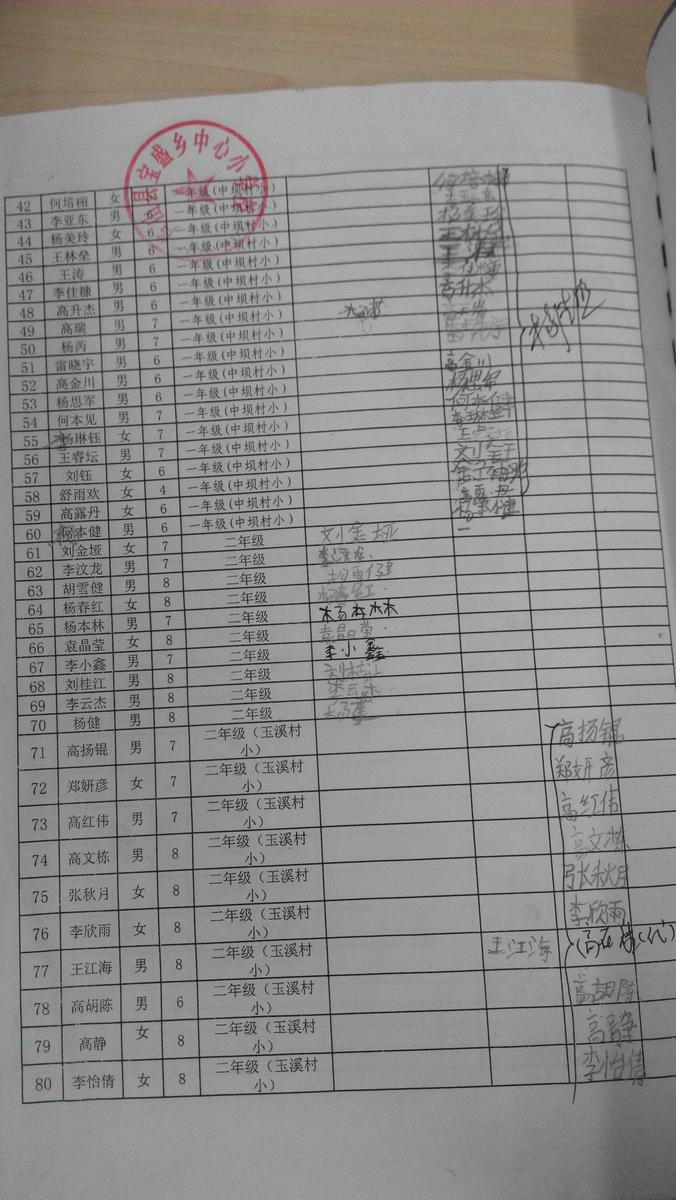 宝盛乡中心小
42 何培栩 女 6 一年级(中坝村小)
43 李亚东 男 6 一年级(中坝村小)
44 杨美玲 女 6 一年级(中坝村小)
45 王林垒 男 6 一年级(中坝村小)
46 王涛 男 6 一年级(中坝村小)
47 李佳糠 男 6 一年级(中坝村小)
48 高升杰 男 6 一年级(中坝村小) 高升杰
49 高瑞 男 7 一年级(中坝村小)
50 杨芮 男 7 一年级(中坝村小)
51 雷晓宇 男 6 一年级(中坝村小)
52 高金川 男 6 一年级(中坝村小) 高金川
53 杨思军 男 6 一年级(中坝村小) 杨思军
54 何本见 男 7 一年级(中坝村小)
55 杨琳钰 女 7 一年级(中坝村小)
56 王睿坛 男 7 一年级(中坝村小)
57 刘钰 女 6 一年级(中坝村小)
58 舒雨欢 女 4 一年级(中坝村小)
59 高露丹 女 6 一年级(中坝村小)
60 何本健 男 6 一年级(中坝村小)
61 刘金垭 女 7 二年级 刘金垭
62 李汶龙 男 7 二年级 李汶龙
63 胡雪健 男 8 二年级 胡雪健
64 杨春红 女 8 二年级 杨春红
65 杨本林 男 7 二年级 杨本林
66 袁晶莹 女 8 二年级 袁晶莹
67 李小鑫 男 7 二年级 李小鑫
68 刘桂江 男 8 二年级 刘桂江
69 李云杰 男 8 二年级 李云杰
70 杨健 男 8 二年级 杨健
71 高扬锟 男 7 二年级（玉溪村小） 高扬锟
72 郑妍彦 女 7 二年级（玉溪村小） 郑妍彦
73 高红伟 男 7 二年级（玉溪村小） 高红伟
74 高文栋 男 8 二年级（玉溪村小） 高文栋
75 张秋月 女 8 二年级（玉溪村小） 张秋月
76 李欣雨 女 8 二年级（玉溪村小） 李欣雨
77 王江海 男 8 二年级（玉溪村小） 王江海
78 高胡陈 男 6 二年级（玉溪村小） 高胡陈
79 高静 女 8 二年级（玉溪村小） 高静
80 李怡倩 女 8 二年级（玉溪村小） 李怡倩